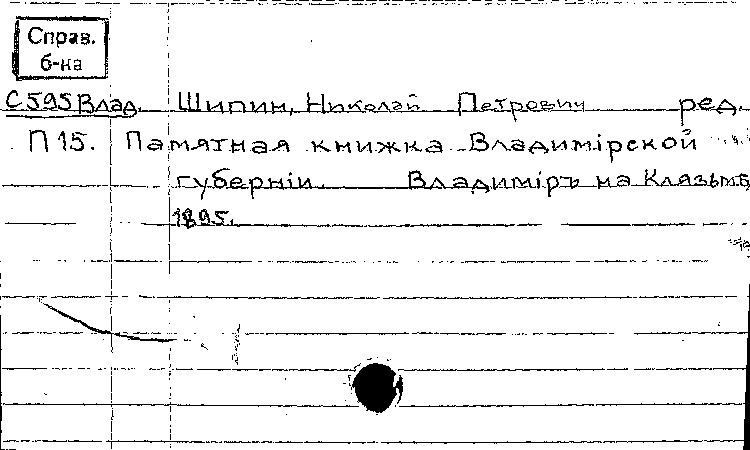 Справ.
б-ка
С595Влад. Шипин, Николай Петрович ред.
П15. Памятная книжка Владимірской
губерніи. Владиміръ на Клязьмѣ
1895.